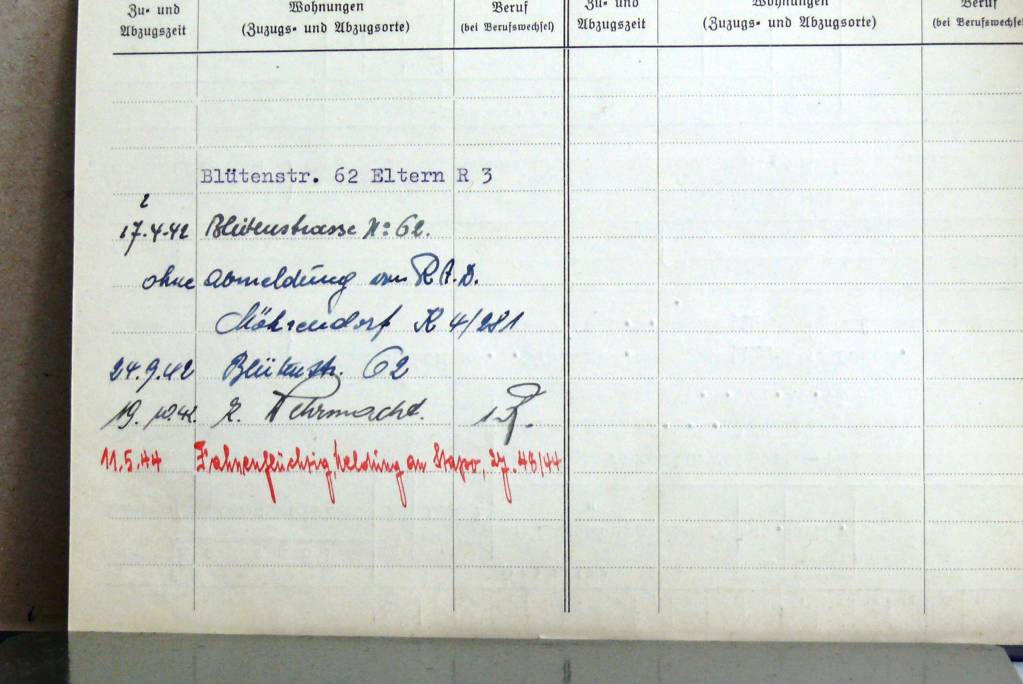 Zu- und Abzugszeit
Wohnungen (Zuzugs- und Abzugsorte)
Beruf (bei Berufswechsel)
Zu- und Abzugszeit
Wohnungen (Zuzugs- und Abzugsorte)
Beruf (bei Berufswechsel)
Blütenstr. 62 Eltern R 3
17.4.42 Blütenstrasse No 62.
ohne Abmeldung vom R.A.D.
Möhrendorf K 4/281
24.9.42 Blütenstr. 62
19.10.42. z. Wehrmacht.
11.5.44 Fahnenflüchtig, Meldung an Stapo, 48/44